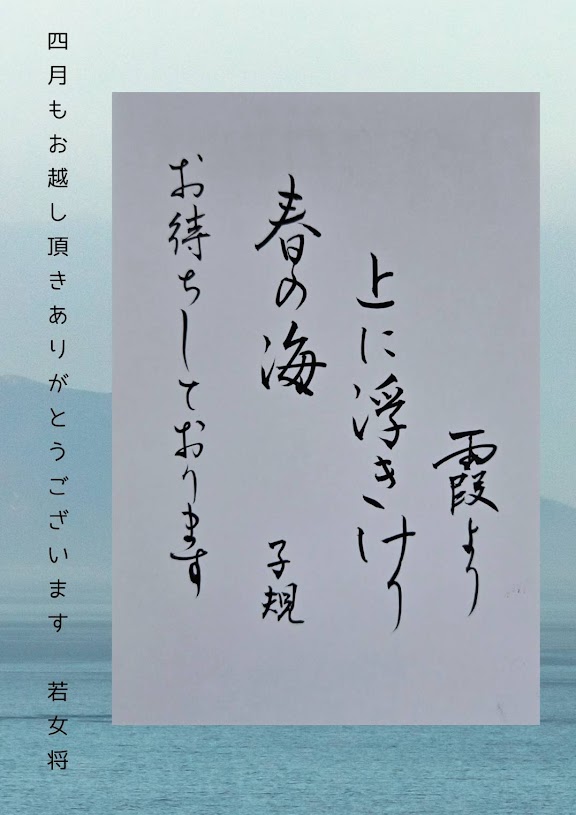 霞より
上に浮きけり
春の海
子規
お待ちしております
四月もお越し頂きありがとうございます 若女将